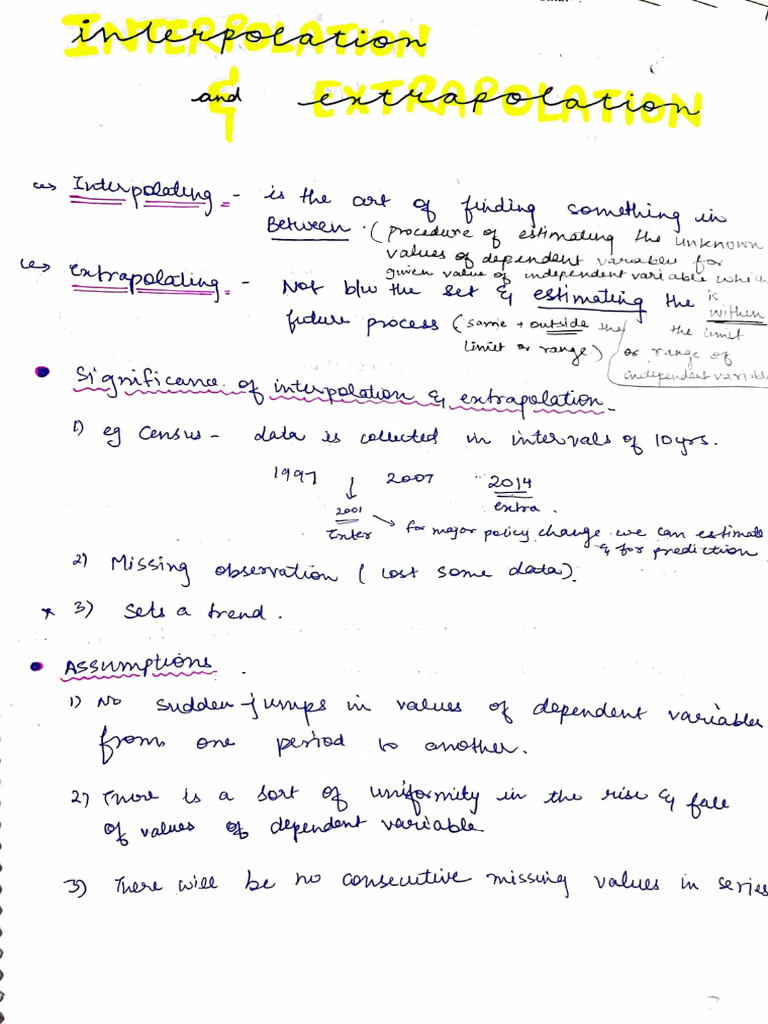 INTERPOLATION
interpolation
&
and extrapolation
EXTRAPOLATION
Interpolating - is the art of finding something in
Between. (procedure of estimating the unknown
values of dependent variable for
given value of independent variable which
is within
the limit
or range of
independent variable
Extrapolating - Not b/w the set & estimating the
future process (same + outside the
limit or range)
• Significance of interpolation & extrapolation
1) eg Census - data is collected in intervals of 10yrs.
1997 ↓ 2007 ..2014
2001 extra.
Inter → for major policy change we can estimate
& for prediction
2) Missing observation (lost some data).
* 3) Sets a trend.
• Assumptions.
1) No sudden jumps in values of dependent variables
from one period to another.
2) There is a sort of uniformity in the rise & fall
of values of dependent variable
3) There will be no consecutive missing values in series